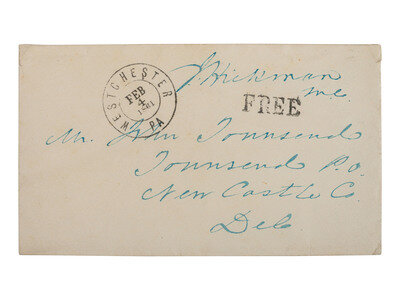 J. Hickman
M.C.
FREE
WESTCHESTER PA
FEB
4
1861
Mr. Wm Townsend
Townsend P.O.
New Castle Co.
Del.